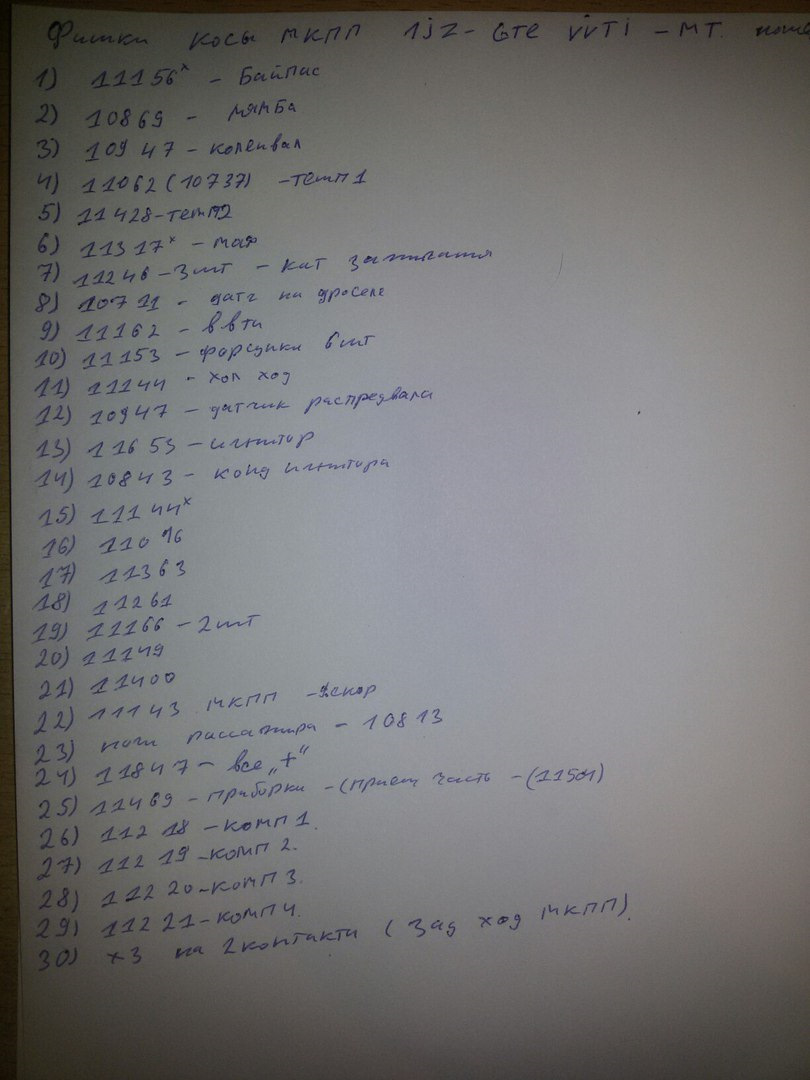 Фишки косы МКПП 1jz-GTE VVTi - MT.
1) 11156ˣ - Байпас
2) 10869 - мамба
3) 10947 - коленвал
4) 11062 (10737) - темп 1
5) 11428 - темп2
6) 11317ˣ - маф
7) 11246 - 3шт - кат зажигания
8) 10711 - датч на дроселе
9) 11162 - ввти
10) 11153 - форсунки 6шт
11) 11144 - хол ход
12) 10947 - датчик распредвала
13) 11653 - игнитор
14) 10843 - конд игнитора
15) 11144ˣ
16) 11096
17) 11363
18) 11261
19) 11166 - 2шт
20) 11149
21) 11400
22) 11143 МКПП -
23) ноги пассажира - 10813
24) 11847 - все „+"
25) 11469 - приборки - (прием часть - (11504)
26) 11218 - комп 1.
27) 11219 - комп 2.
28) 11220 - комп 3.
29) 11221 - комп 4.
30) хз на 2контакти (зад ход МКПП).